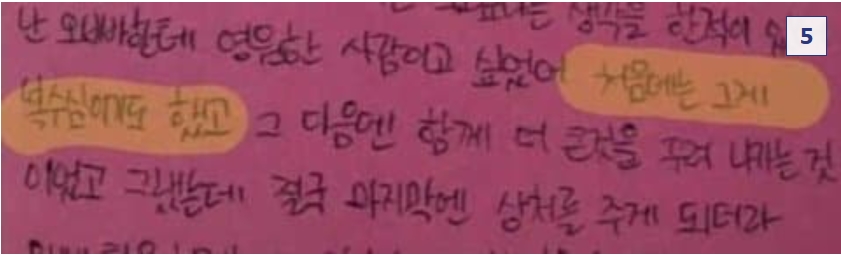 생각을 한적이
5
난 오빠한테 영원한 사람이고 싶었어 처음에는 그게
복수심이기도 했고 그 다음엔 함께 더 큰것을 꾸려 나가는 것
이었고 그랬는데 결국 마지막엔 상처를 주게 되더라